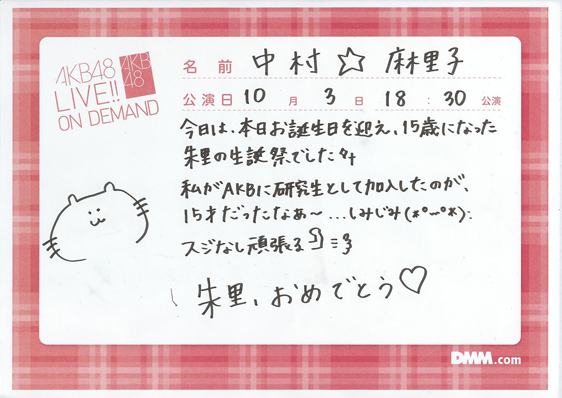 AKB48
LIVE!!
ON DEMAND
AKB
48
名前 中村☆麻里子
公演日 10月 3日 18:30 公演
今日は、本日お誕生日を迎え、15歳になった
朱里の生誕祭でした
私がAKBに研究生として加入したのが、
15才だったなぁ～…しみじみ(*°ー°*):
スジなし頑張る
朱里、おめでとう♡
DMM.com